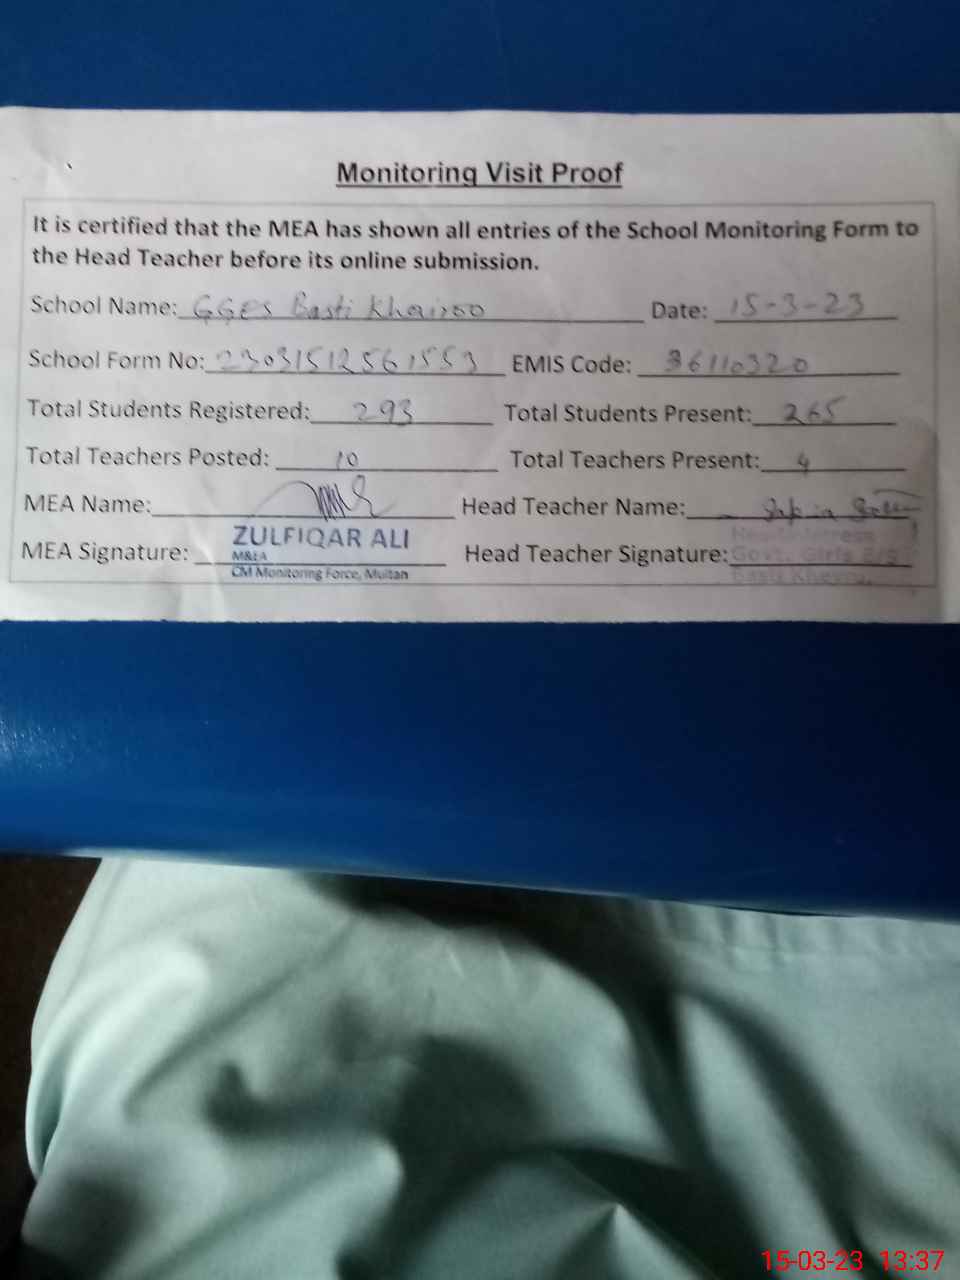 Monitoring Visit Proof
It is certified that the MEA has shown all entries of the School Monitoring Form to
the Head Teacher before its online submission.
School Name: GGES Basti Khairoo Date: 15-3-23
School Form No: 23031512561553 EMIS Code: 36110320
Total Students Registered: 293 Total Students Present: 265
Total Teachers Posted: 10 Total Teachers Present: 4
MEA Name: Head Teacher Name:
ZULFIQAR ALI
MEA Signature: M&EA Head Teacher Signature: Govt. Girls E/S
CM Monitoring Force, Multan
15-03-23 13:37